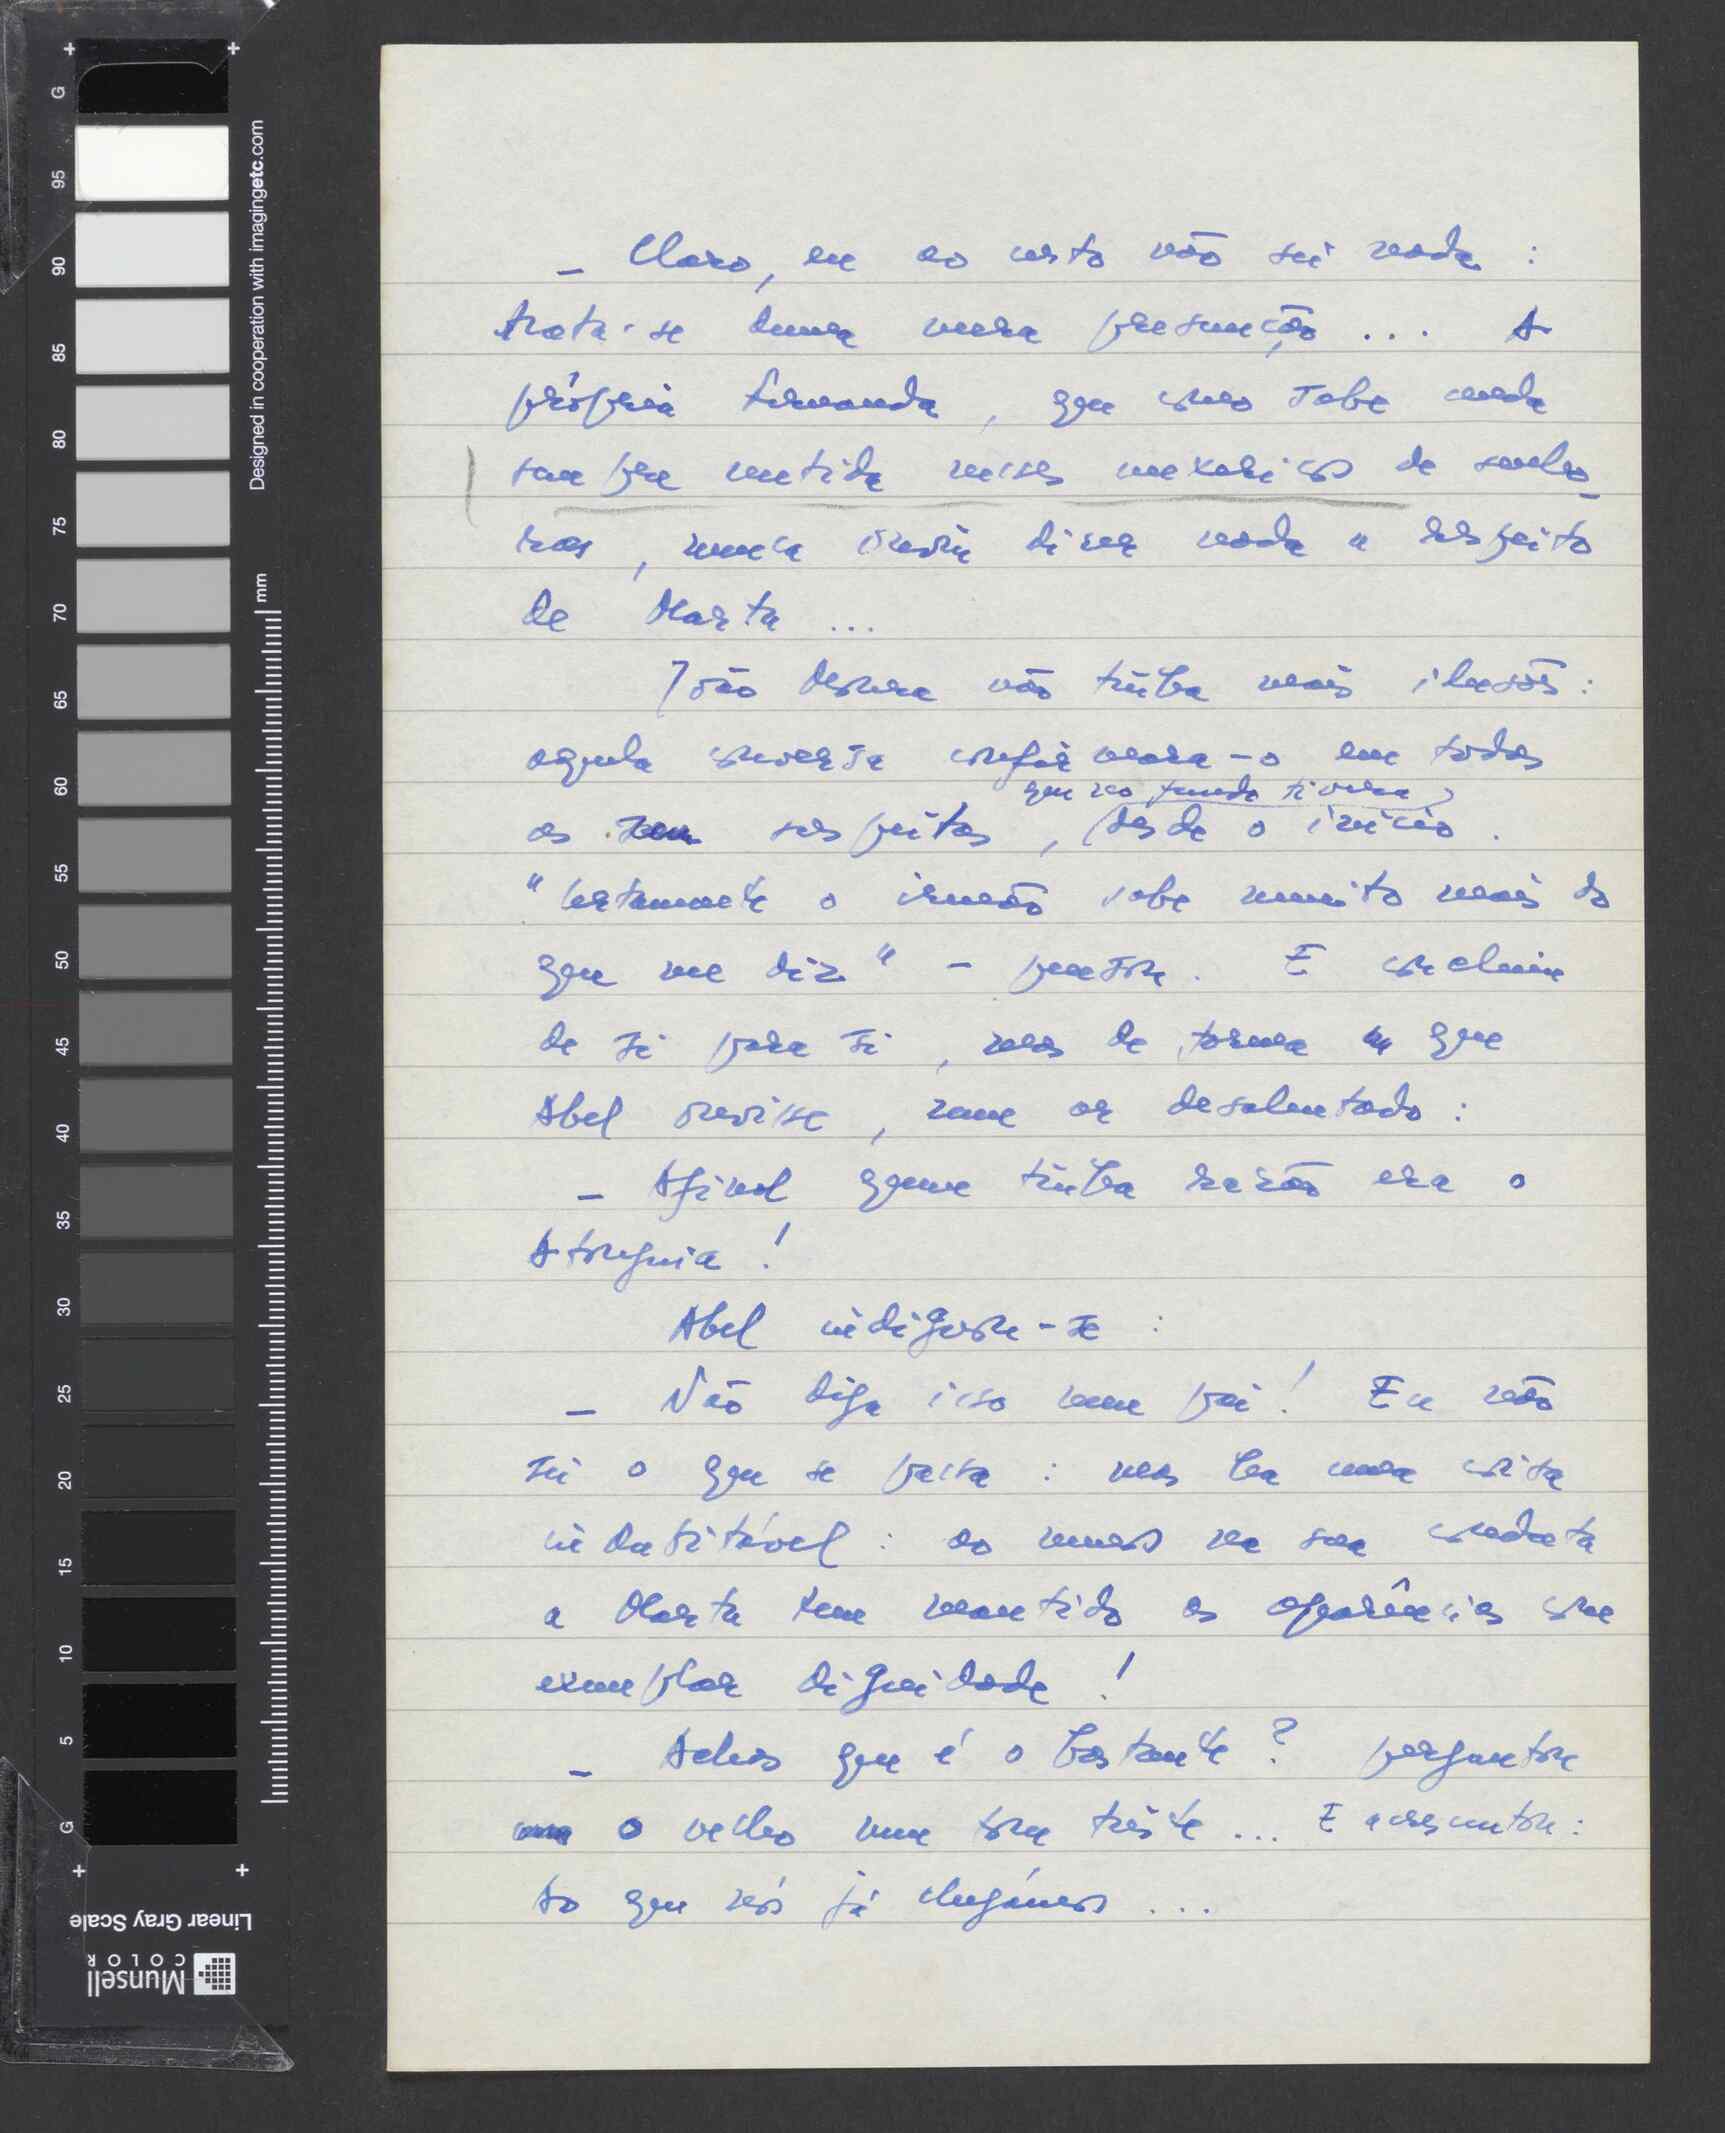 — Claro, eu ao certo não sei nada :
trata-se duma mera presunção ... A
própria Fernanda, que como sabe anda
sempre metida nesses mexericos de senho-
ras, nunca ouviu dizer nada a respeito
de Marta ...
João Moura não tinha mais ilusões :
aquela conversa confirmara-o em todas
que no fundo tivera,
as suspeitas, desde o início.
"Certamente o irmão sabe muito mais do
que me diz" — pensou. E concluiu
de si para si, mas de forma a que
Abel ouvisse, num ar desalentado :
— Afinal quem tinha razão era o
Atouguia !
Abel indignou-se :
— Não diga isso meu pai ! Eu não
sei o que se passa : mas há uma coisa
indubitável : ao menos na sua conduta
a Marta tem mantido as aparências com
exemplar dignidade !
— Achas que é o bastante ? perguntou
o velho num tom triste ... E acrescentou :
Ao que nós já chegámos ...
Designed in cooperation with imagingetc.com
mm
G
95
90
85
80
75
70
65
60
55
50
45
40
35
30
25
20
15
10
5
G
Linear Gray Scale
Munsell
COLOR